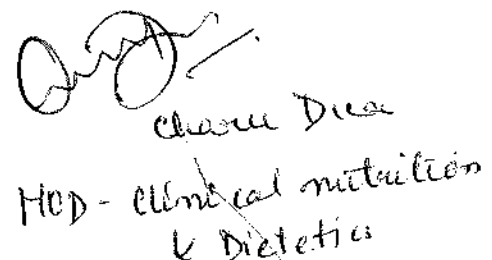 Charu Dua
HOD - Clinical nutrition
& Dietetics